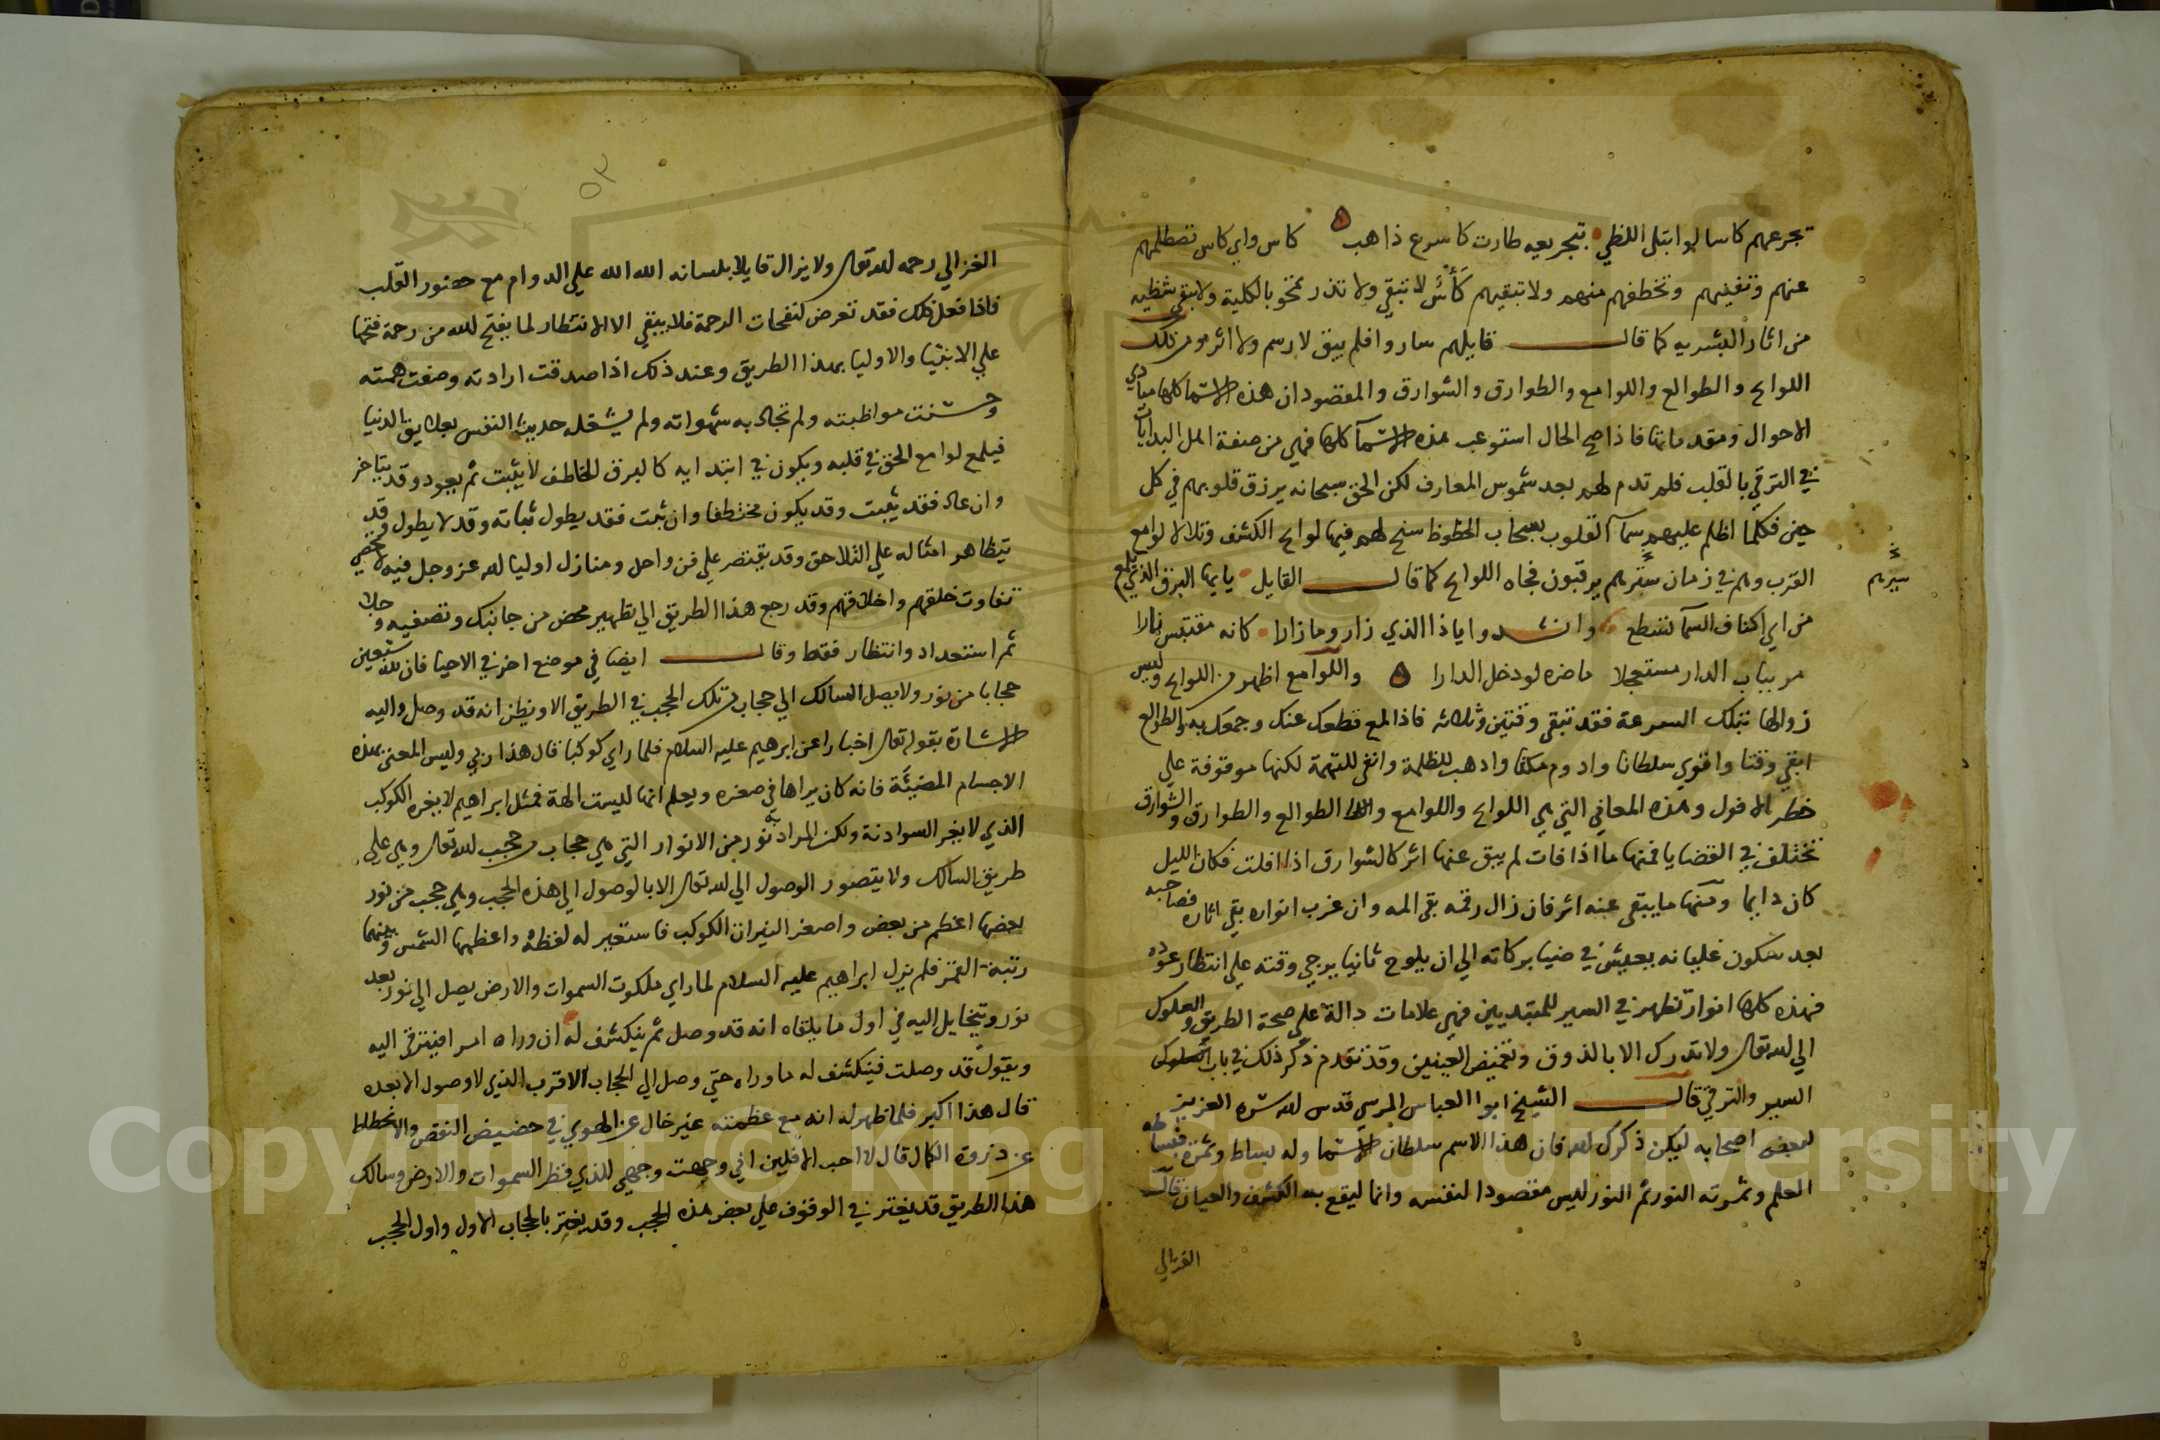 تجرعهم كاسا لو ابتلى اللظي بتجريعه طارت كاسرع ذاهب كاس واي كاس تصطلمهم
عنهم وتفنيهم وتخطفهم منهم ولا تبقيهم كأس لا تبقي ولا تذر تمحو بالكلية ولا تبقي شظيه
من اثار البشريه كما قال قايلهم ساروا فلم يبق لا رسم ولا اثر ومن تلك
اللوايح والطوالع واللوامع والطوارق والشوارق والمقصود ان هذه الاسما كلها مبادي
الاحوال ومقدماتها فاذا صح الحال استوعب هذه الاسمآ كلها فهي من صفة اهل البدايات
في الترقي بالقلب فلم تدم لهم بعد شموس المعارف لكن الحق سبحانه يرزق قلوبهم في كل
حين فكلما اظلم عليهم سمآ القلوب بسحاب الحظوظ سنح لهم فيها لوايح الكشف وتلالا لوامع
القرب وهم في زمان سترهم يرقبون فجاه اللوايح كما قال القايل يايها البرق الذي يلمع
من اي اكناف السمآ تسطع وانشدوا ياذا الذي زار وما زارا كانه مقتبس نارا
مر بباب الدار مستعجلا ما ضره لو دخل الدارا واللوامع اظهر من اللوايح وليس
زوالها بتلك السرعة فقد تبقى وقتين وثلاثه فاذا لمع قطعك عنك وجمعك به والطوالع
ابقي وقتا واقوي سلطانا وادوم مكثا واذهب للظلمة وانفى للتهمة لكنها موقوفة علي
خطر الافول وهذه المعاني التي هي اللوايح واللوامع والطوالع والطوارق والشوارق
تختلف في القضايا فمنها ما اذا فات لم يبق عنها اثر كالشوارق اذا افلت فكان الليل
كان دايما ومنها ما يبقى عنه اثر فان زال رقمه بقي المه وان غرب انواره بقي اثاره فصاحبه
بعد سكون غليانه يعيش في ضيا بركاته الي ان يلوح ثانيا يرجي وقته علي انتظار عوده
فهذه كلها انوار تظهر في السير للمبتديين فهي علامات دالة علي صحة الطريق والسلوك
الي الله تعالى ولا تدرك الا بالذوق وتغميض العينين وقد تقدم ذكر ذلك في باب السلوك
السير والترقي قال الشيخ ابوا العباس المرسي قدس الله سره العزيز
لبعض اصحابه ليكن ذكرك الله فان هذا الاسم سلطان الاسما وله بساط وثمره فبساطه
العلم وثمرته النور ثم النور ليس مقصودا لنفسه وانما ليقع به الكشف والعيان قال
الغزالي
سيرهم
٥٣
الغزالي رحمه الله تعالى ولا يزال قايلا بلسانه الله الله علي الدوام مع حضور القلب
فاذا فعل ذلك فقد تعرض لنفحات الرحمة فلا يبقي الا الانتظار لما يفتح الله من رحمة فتحها
علي الانبيا والاوليا بهذا الطريق وعند ذلك اذا صدقت ارادته وصفت همته
وحسنت مواظبته ولم تجاذبه شهواته ولم يشغله حديث النفس بعلايق الدنيا
فيلمع لوامع الحق في قلبه ويكون في ابتدايه كالبرق الخاطف لا يثبت ثم يعود وقد يتاخر
وان عاد فقد يثبت وقد يكون مختطفا وان ثبت فقد يطول ثباته وقد لا يطول وقد
يتظاهر امثاله علي التلاحق وقد يقتصر علي فن واحد ومنازل اوليا الله عز وجل فيه لا تحصي
تفاوت خلقهم واخلاقهم وقد رجع هذا الطريق الي تطهير محض من جانبك وتصفيه وجلا
ثم استعداد وانتظار فقط وقال ايضا في موضع اخر في الاحيا فان لله سبعين
حجابا من نور ولا يصل السالك الي حجاب من تلك الحجب في الطريق الا ويظن انه قد وصل واليه
الاشارة بقوله تعالى اخبارا عن ابرهيم عليه السلام فلما راي كوكبا قال هذا ربي وليس المعنى بهذه
الاجسام المضيئة فانه كان يراها في صغره ويعلم انها ليست الهة فمثل ابراهيم لا يغره الكوكب
الذي لا يغر السوادنة ولكن المراد به نور من الانوار التي هي حجاب من حجب الله تعالى وهي علي
طريق السالك ولا يتصور الوصول الي الله تعالى الا بالوصول الي هذه الحجب وهي حجب من نور
بعضها اعظم من بعض واصغر النيران الكوكب فاستعير له لفظه واعظمها الشمس وبينهما
رتبة القمر فلم يزل ابراهيم عليه السلام لما راي ملكوت السموات والارض يصل الي نور بعد
نور ويتخايل اليه في اول ما يلقاه انه قد وصل ثم ينكشف له ان وراه امرا فيترقي اليه
ويقول قد وصلت فينكشف له ما وراه حتي وصل الي الحجاب الاقرب الذي لا وصول الا بعده
قال هذا اكبر فلما ظهر له انه مع عظمته غير خال عن الهوي في حضيض النقص والانحطاط
عن ذروة الكمال قال لا احب الافلين اني وجهت وجهي للذي فطر السموات والارض وسالك
هذا الطريق قد يغتر في الوقوف علي بعض هذه الحجب وقد يغتر بالحجاب الاول واول الحجب
Copyright © King Saud University